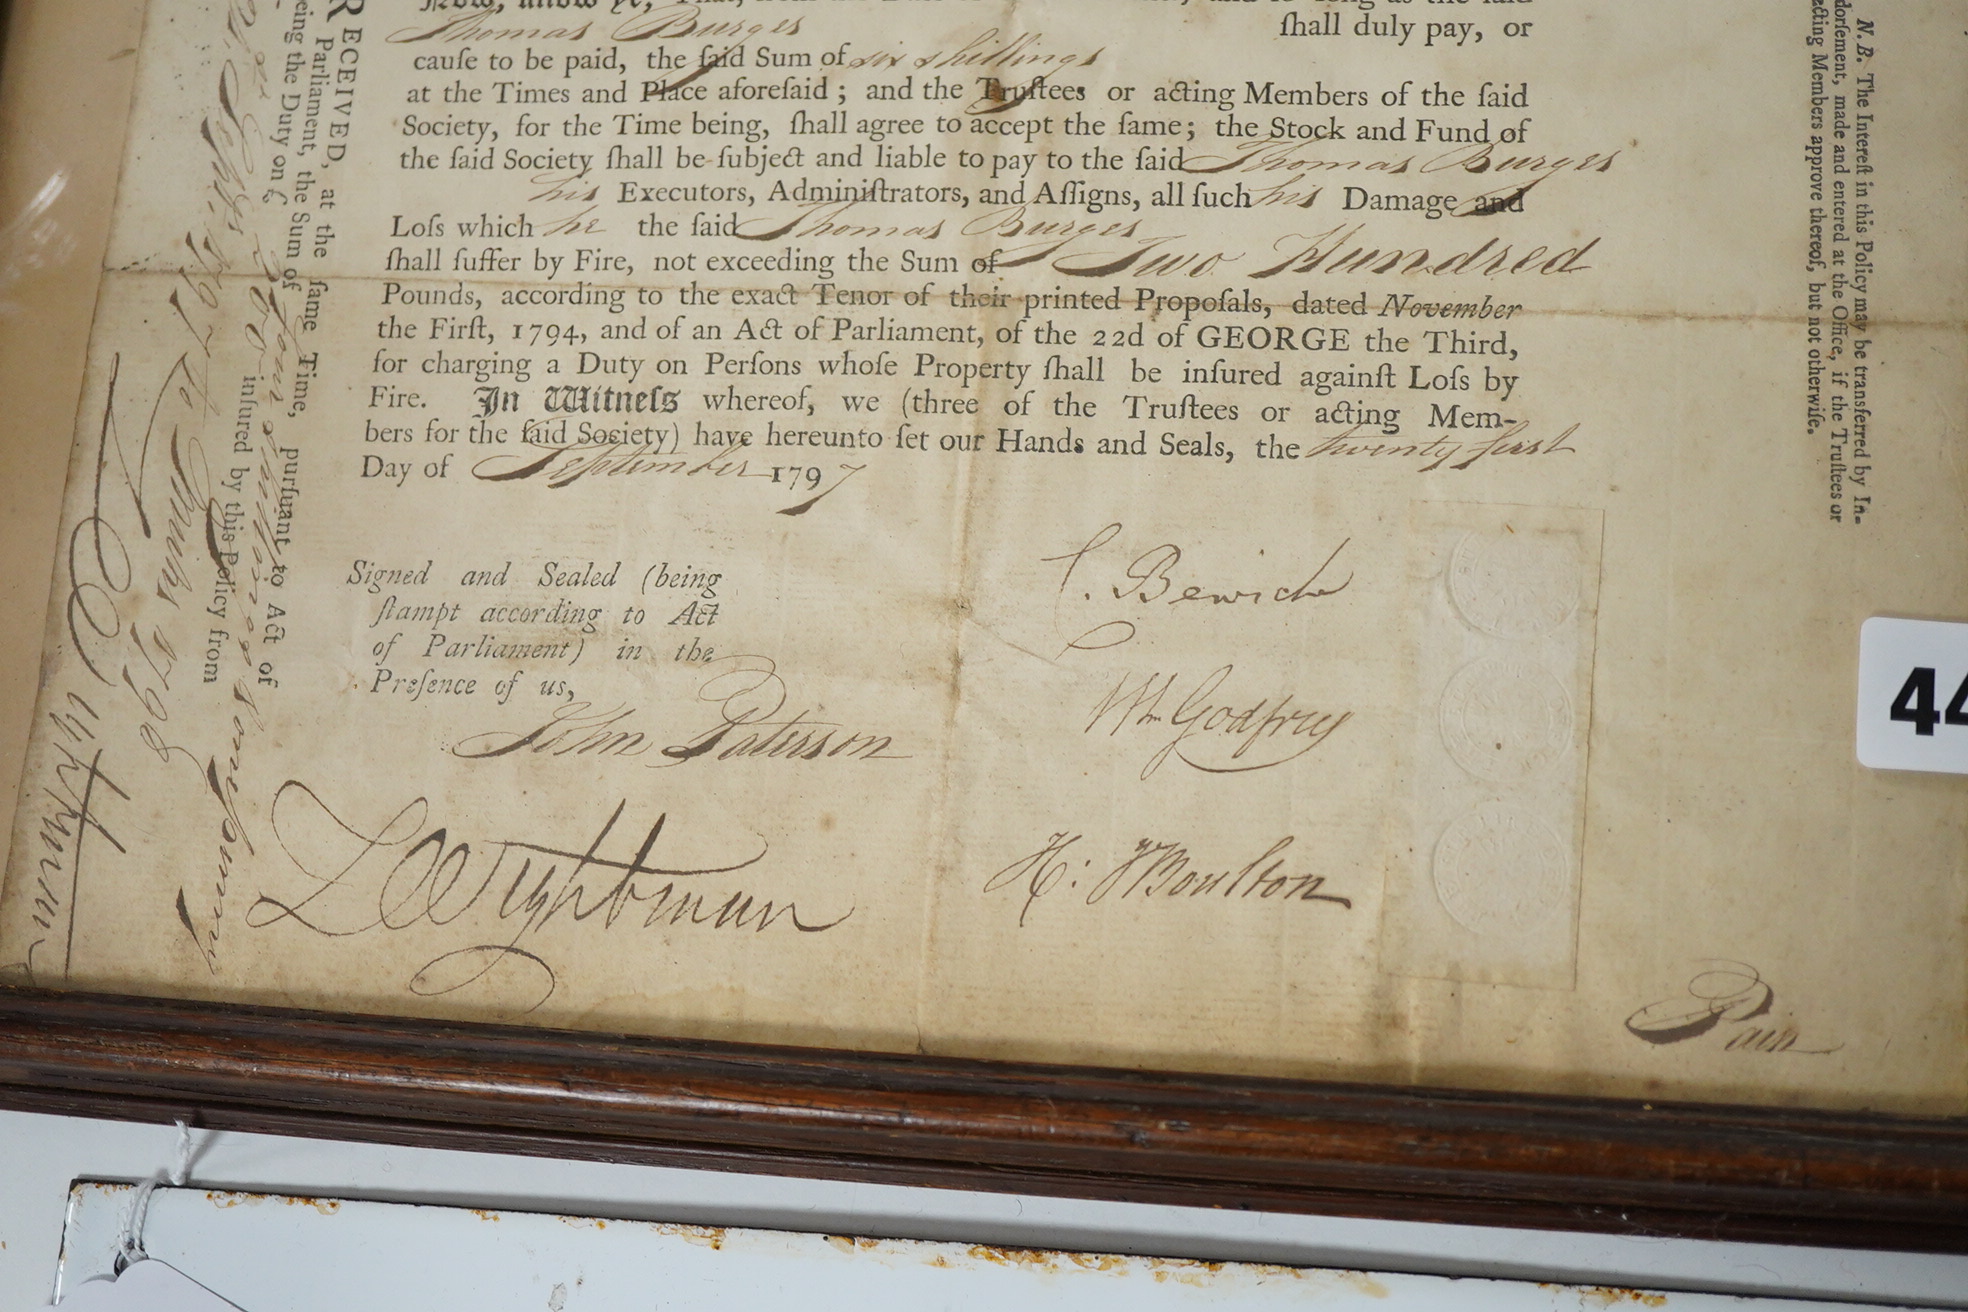 Now, know ye, That, from the Date of
and so long as the said
Thomas Burges shall duly pay, or
cauſe to be paid, the ſaid Sum of six shillings
at the Times and Place aforeſaid; and the Truſtees or acting Members of the ſaid
Society, for the Time being, ſhall agree to accept the ſame; the Stock and Fund of
the ſaid Society ſhall be ſubject and liable to pay to the ſaid Thomas Burges
his Executors, Adminiſtrators, and Aſſigns, all ſuch his Damage and
Loſs which he the ſaid Thomas Burges
ſhall ſuffer by Fire, not exceeding the Sum of Two Hundred
Pounds, according to the exact Tenor of their printed Propoſals, dated November
the Firſt, 1794, and of an Act of Parliament, of the 22d of GEORGE the Third,
for charging a Duty on Perſons whoſe Property ſhall be inſured againſt Loſs by
Fire. In Witneſs whereof, we (three of the Truſtees or acting Mem-
bers for the ſaid Society) have hereunto ſet our Hands and Seals, the twenty first
Day of September 1797
Signed and Sealed (being
ſtampt according to Act
of Parliament) in the
Preſence of us,
John Paterson
L Wightman
C. Bewicke
Wm Godfrey
H: Moulton
Pain
RECEIVED, at the ſame Time, purſuant to Act of
Parliament, the Sum of four shillings
being the Duty on £ 200 inſured by this Policy from
Sepr. 1797 to Xmas 1798
L Wightman
N. B. The Intereſt in this Policy may be transferred by In-
dorſement, made and entered at the Office, if the Truſtees or
acting Members approve thereof, but not otherwiſe.
44